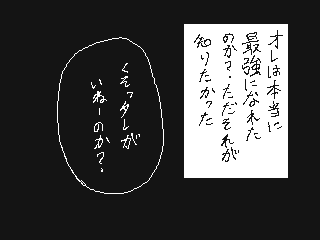 オレは本当に
最強になれた
のか?・ただそれが
知りたかった
くそっタレが
いねーのか?・